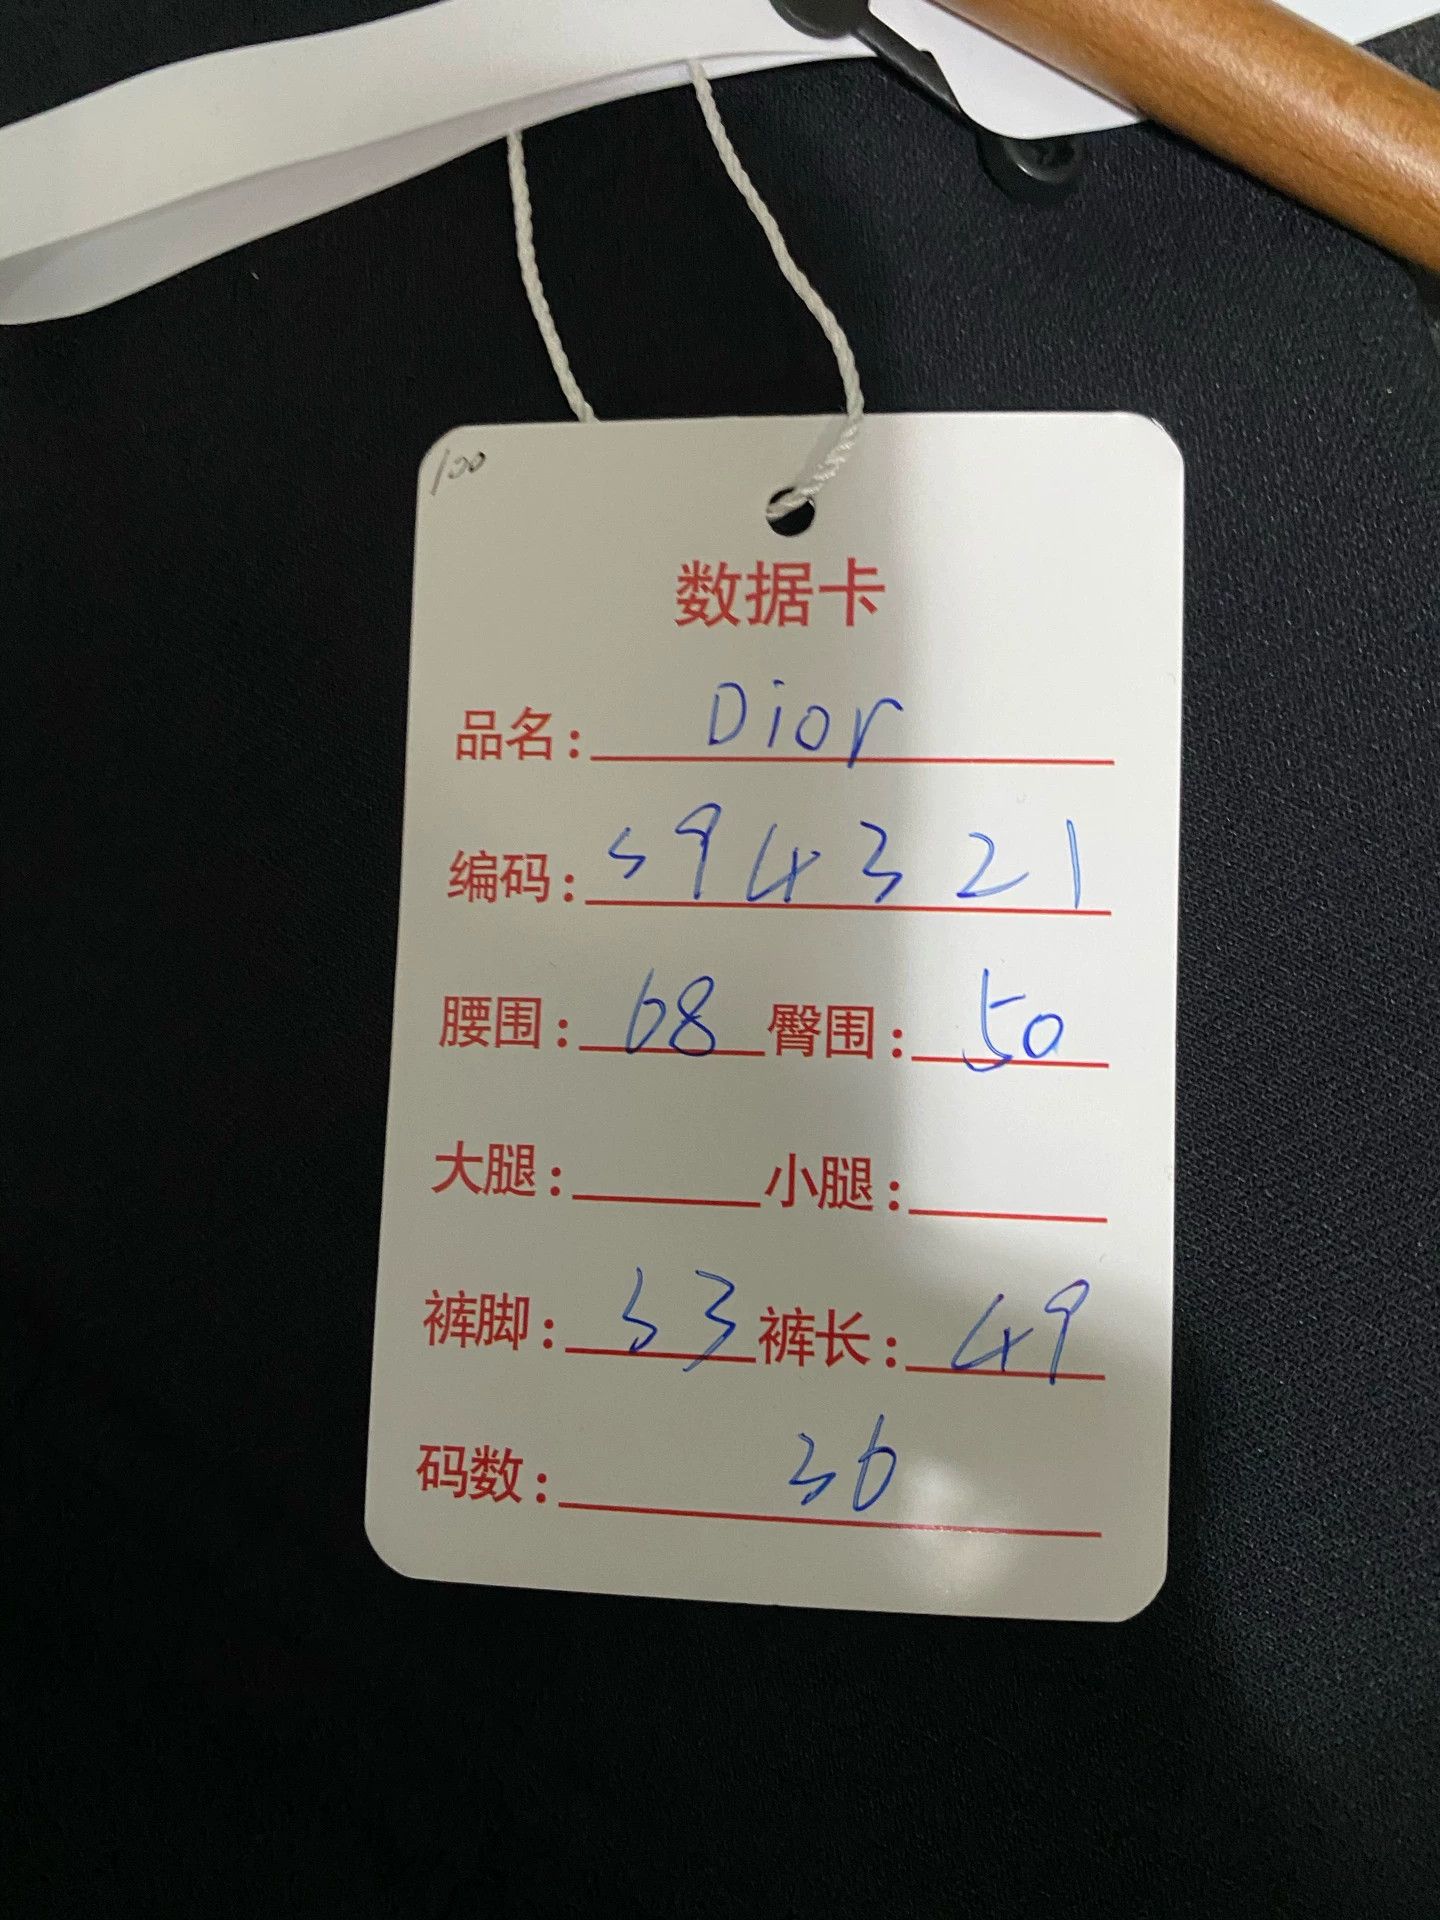 100
数据卡
品名: Dior
编码: S94321
腰围: 68 臀围: 50
大腿: 小腿:
裤脚: 53 裤长: 49
码数: 36